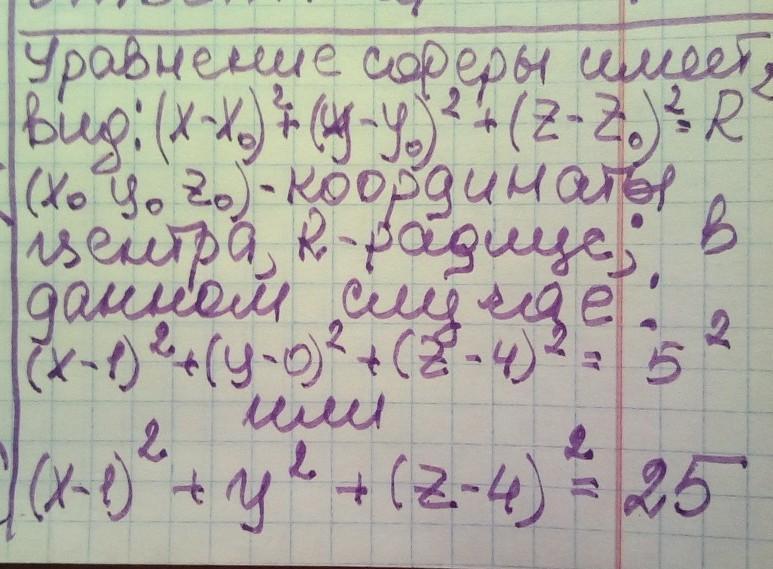 Уравнение сферы имеет
вид: (x-x₀)²+(y-y₀)²+(z-z₀)²=R²
(x₀ y₀ z₀)-координаты
центра, R-радиус; в
данном случае:
(x-1)²+(y-0)²+(z-4)²= 5²
или
(x-1)² + y² + (z-4)² = 25